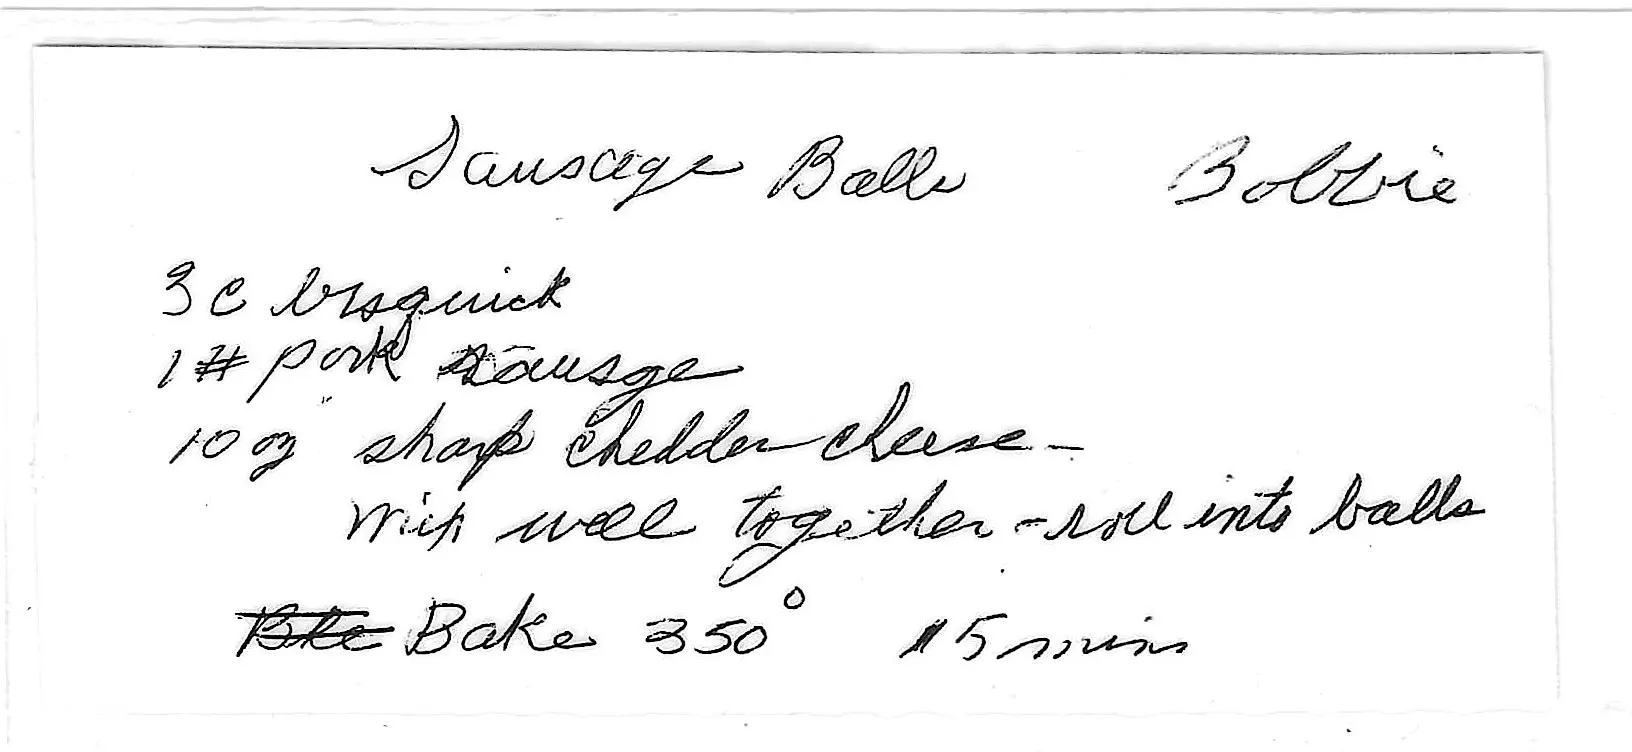 Sausage Balls Bobbie
3 c bisquick
1 # pork sausge
10 oz sharp chedder cheese -
Mix well together - roll into balls
Bake 350° 15 mins